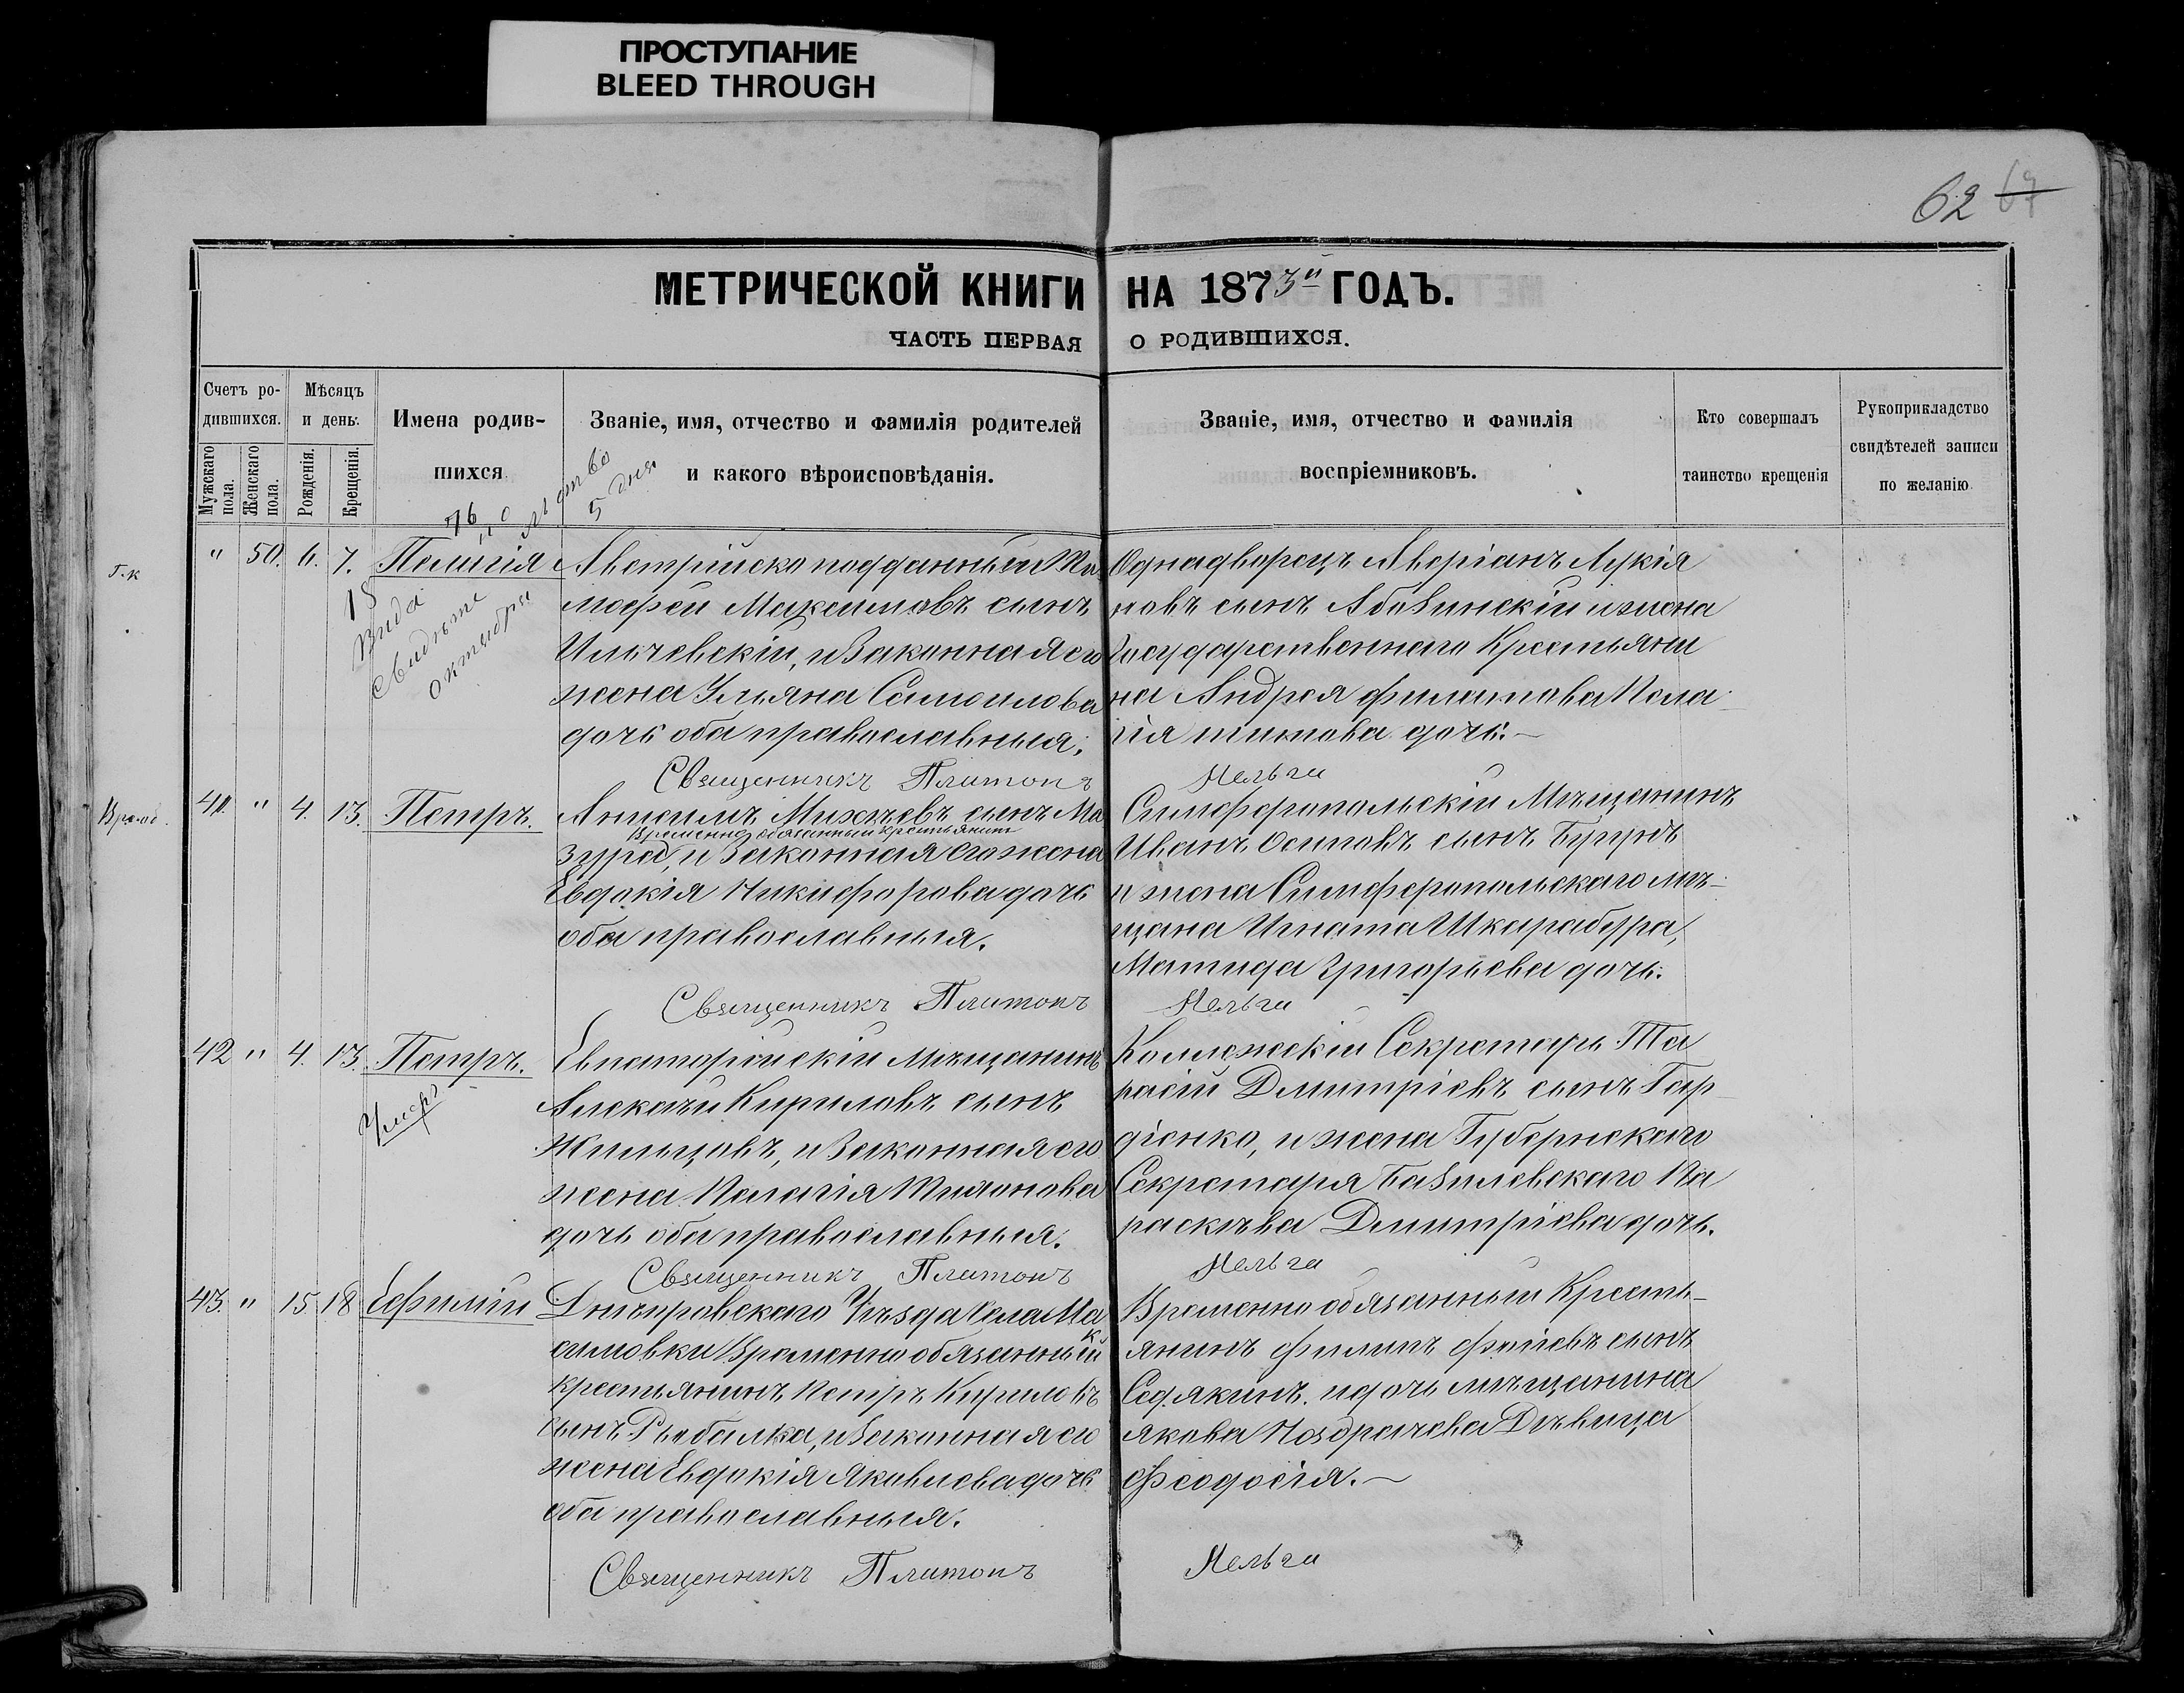 ПРОСТУПАНИЕ
BLEED THROUGH
62 67
МЕТРИЧЕСКОЙ КНИГИ НА 1873й ГОДЪ.
ЧАСТЬ ПЕРВАЯ О РОДИВШИХСЯ.
Счетъ ро-
дившихся.
Мужскаго пола.
Женскаго пола.
Мѣсяцъ
и день.
Рожденія.
Крещенія.
Имена родив-
шихся
Званіе, имя, отчество и фамилія родителей
и какого вѣроисповѣданія.
Званіе, имя, отчество и фамилія
воспріемниковъ.
Кто совершалъ
таинство крещенія
Рукоприкладство
свидѣтелей записи
по желанію
Г.к
" 50. 6. 7. Пелагія
октября
5 дня
Австрійско подданный Ти
мофей Максимовъ сынъ
Ильчевскій, и Законная его
жена Ульяна Самоилова
дочь оба православныя;
Священникъ Платонъ Мельга
Однадворецъ Аверіанъ Лукія
новъ сынъ и жена
Государственнаго Крестьяни
на Андрея Филатова Пела
гія титова дочь.—
Врем.об.
41. " 4. 13. Петръ.
Антоимъ Михѣевъ сынъ Ма
Временно обязанный крестьянинъ
зура, и Законная его жена
Евдокія Никифорова дочь
оба православныя.
Священникъ Платонъ Мельга
Симферопольскій Мѣщанинъ
Иванъ Осиповъ сынъ
и жена Симферопольскаго мѣ-
щана Игната Шкарабура,
Григорьева дочь.
42 " 4. 13. Петръ.
Умеръ
Евпаторійскій Мѣщанинъ
Алексѣй Кириловъ сынъ
Жильцовъ, и Законная его
жена Пелагія
дочь оба православныя.
Священникъ Платонъ Мельга
Коллежскій Секретарь Та
расій Дмитріевъ сынъ Гор
діенко, и жена Губернскаго
Секретаря Базилевскаго Па
раскѣва Дмитріева дочь.
43. " 15 18 Ефимій
Днѣпровскаго Уѣзда села Ма
к
симовки Временно обязанный
крестьянинъ Петръ Кириловъ
сынъ Рыбалка, и Законная его
жена Евдокія Яковлева дочь
оба православныя.
Священникъ Платонъ Мельга
Временно обязанный Кресть-
янинъ Филипъ сынъ
Седякинъ. и дочь мѣщанина
Якова Ноздрачева Дѣвица
Феодосія.—